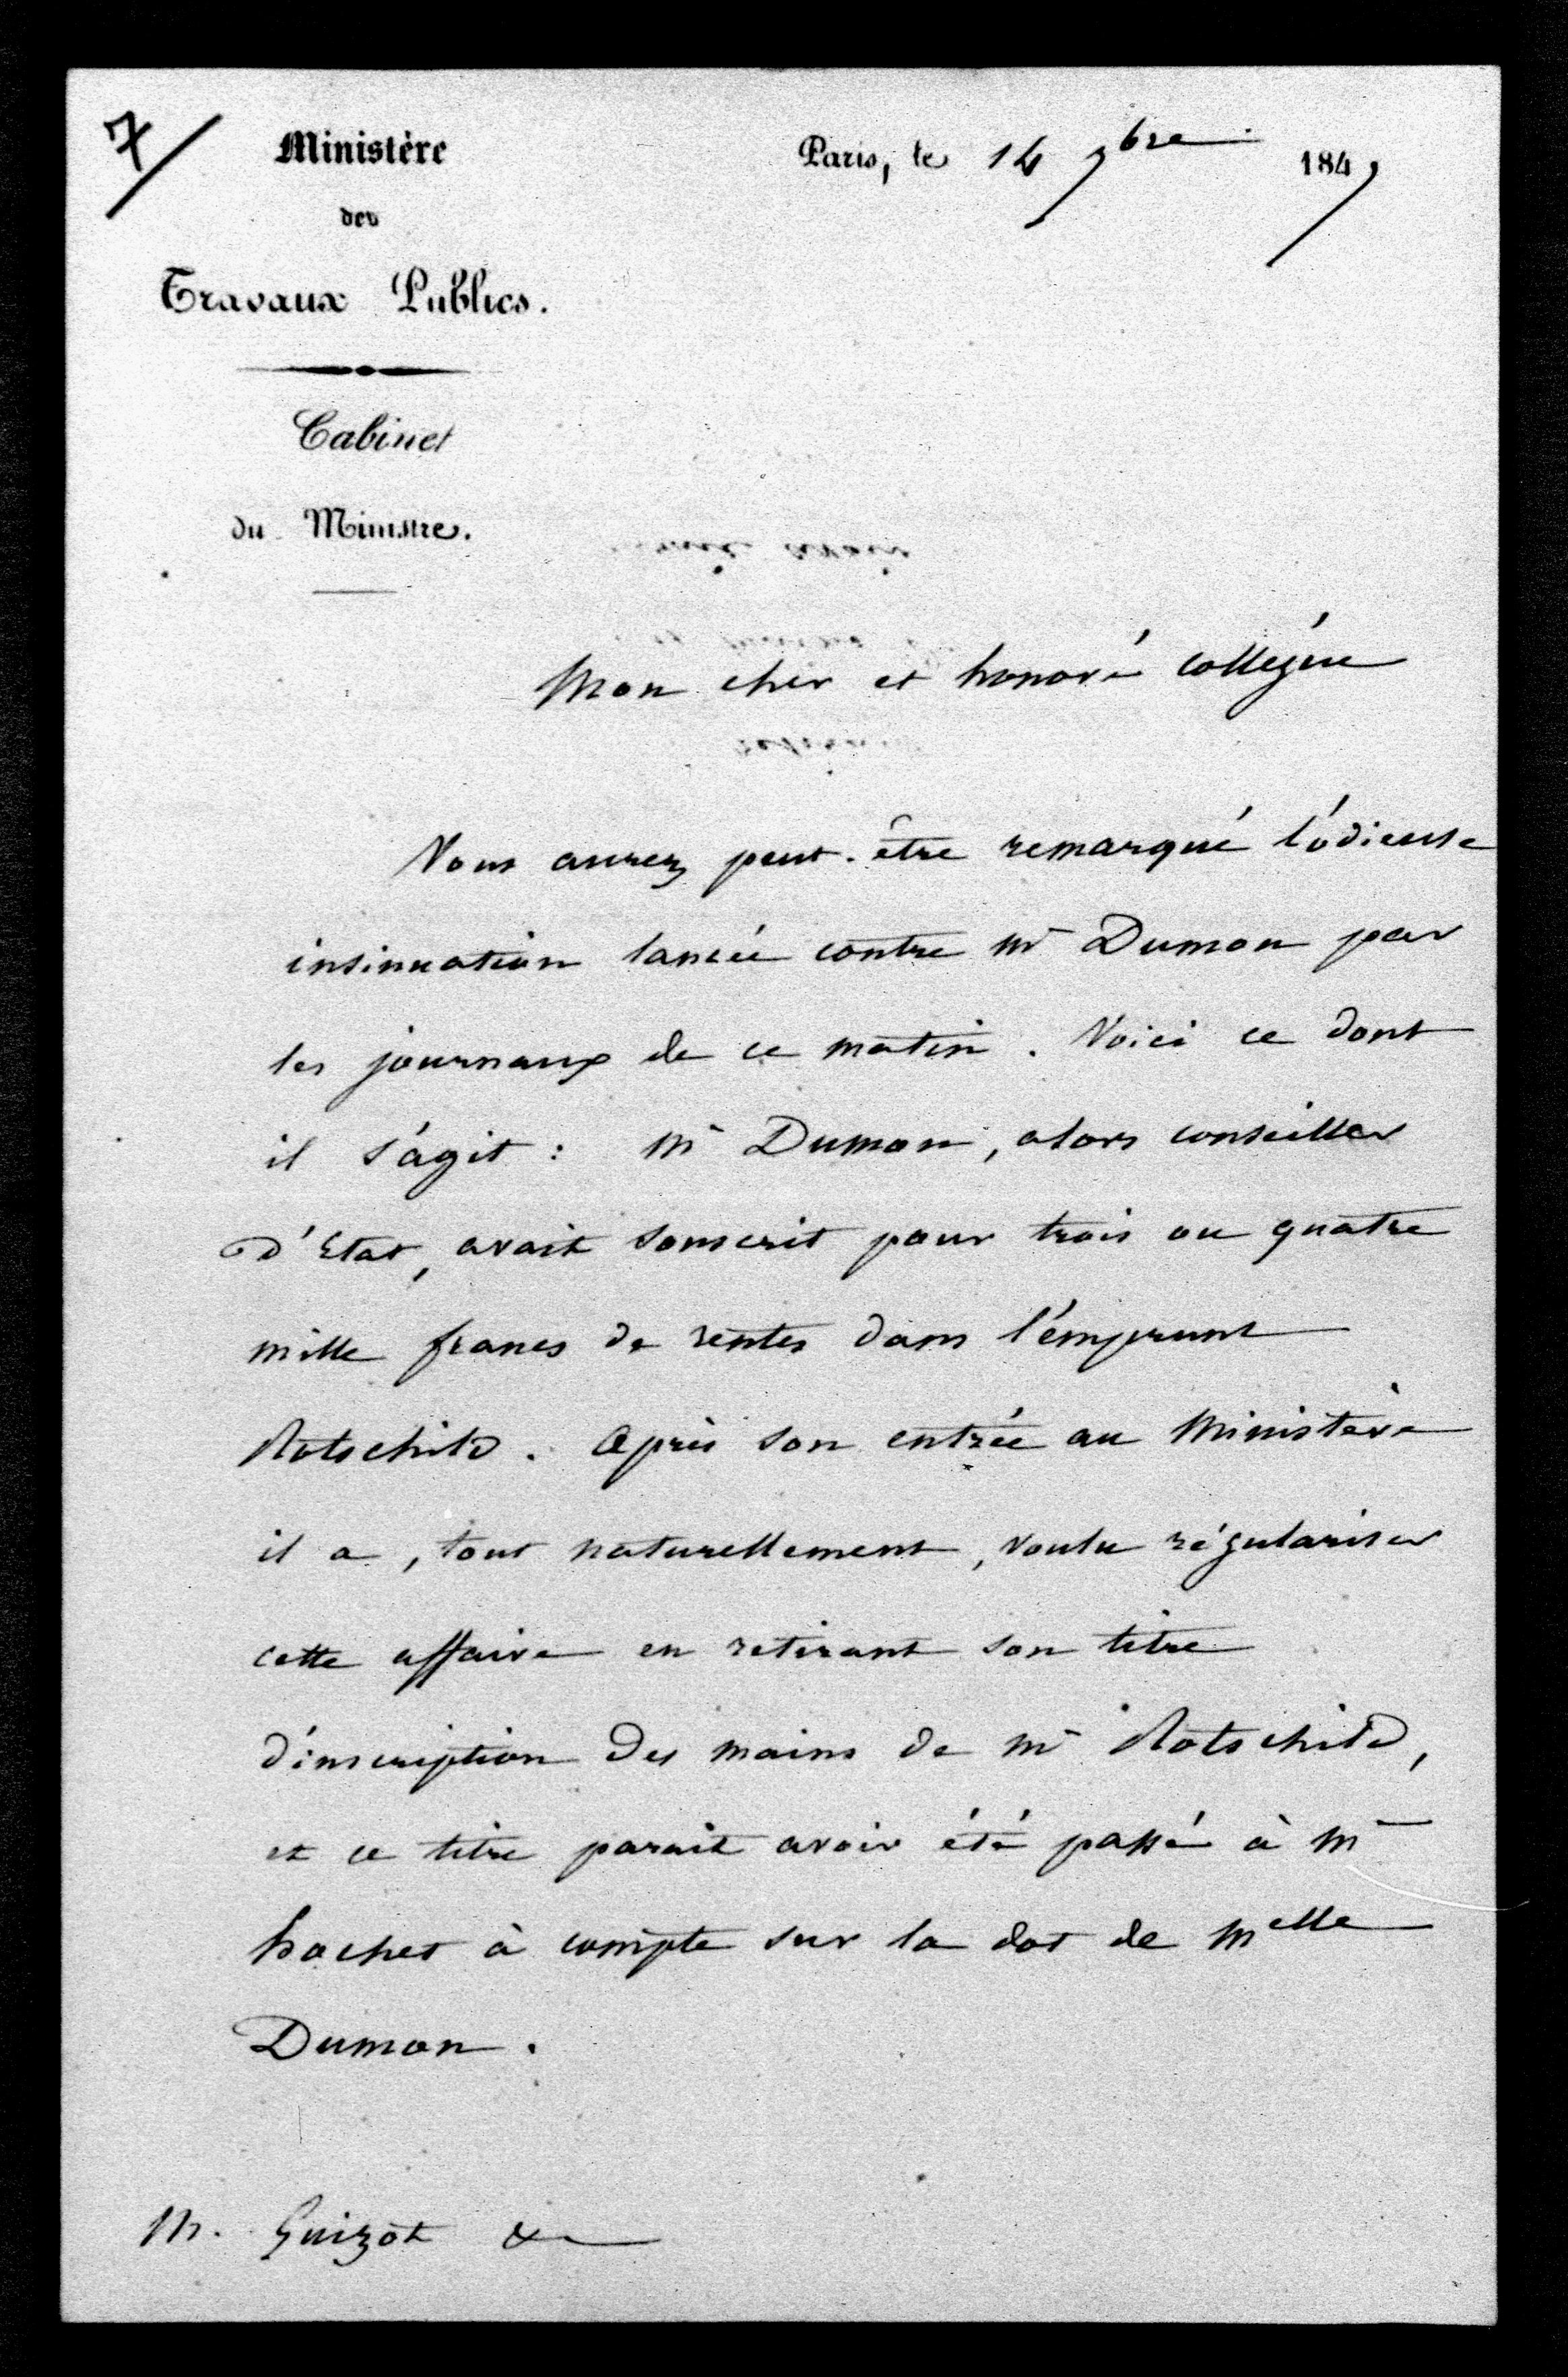 7/
Ministère
des
Travaux Publics.
Cabinet
du Ministre.
Paris, le 14 7bre 1847
Mon cher et honoré collègue
Vous aurez peut-être remarqué l'odieuse
insinuation lancée contre Mr Dumon par
les journaux de ce matin. Voici ce dont
il s'agit : Mr Dumon, alors conseiller
d'Etat, avait souscrit pour trois ou quatre
mille francs de rentes dans l'emprunt
Rotschild. Après son entrée au Ministère
il a, tout naturellement, voulu régulariser
cette affaire en retirant son titre
d'inscription des mains de Mr Rotschild,
et ce titre parait avoir été passé à Mr
hachet à compte sur la dot de Melle
Dumon.
M. Guizot &